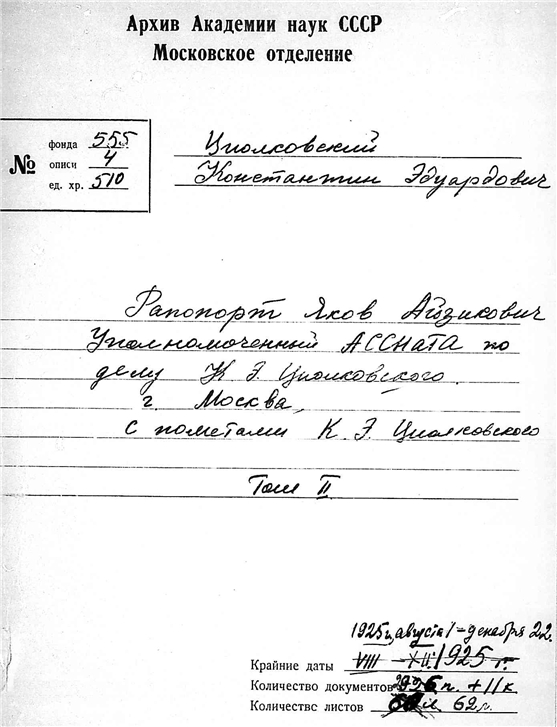 Архив Академии наук СССР
Московское отделение
№
фонда 555
описи 4
ед. хр. 510
Циолковский
Константин Эдуардович
Рапопорт Яков Айзикович
Уполномоченный АССНАТа по
делу К Э. Циолковского.
г. Москва,
с пометами К. Э. Циолковского
Том II
1925 г, августа 1 – декабря 22.
Крайние даты VIII – XII. 1925 г.
Количество документов п. + 11 к.
Количество листов 62 л.